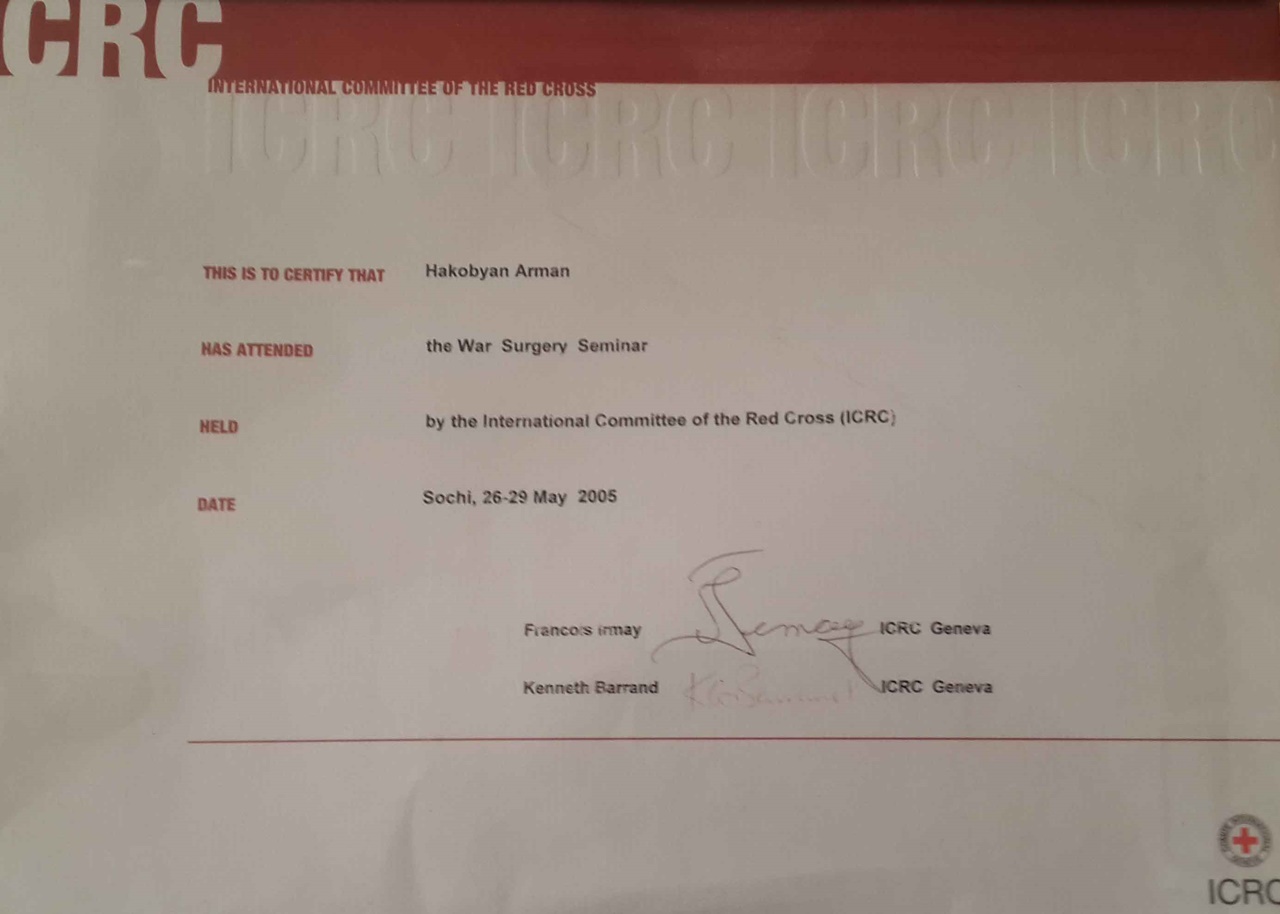 ICRC
INTERNATIONAL COMMITTEE OF THE RED CROSS
ICRC ICRC ICRC ICRC
THIS IS TO CERTIFY THAT Hakobyan Arman
HAS ATTENDED the War Surgery Seminar
HELD by the International Committee of the Red Cross (ICRC)
DATE Sochi, 26-29 May 2005
Francois Irmay ICRC Geneva
Kenneth Barrand ICRC Geneva
ICRC